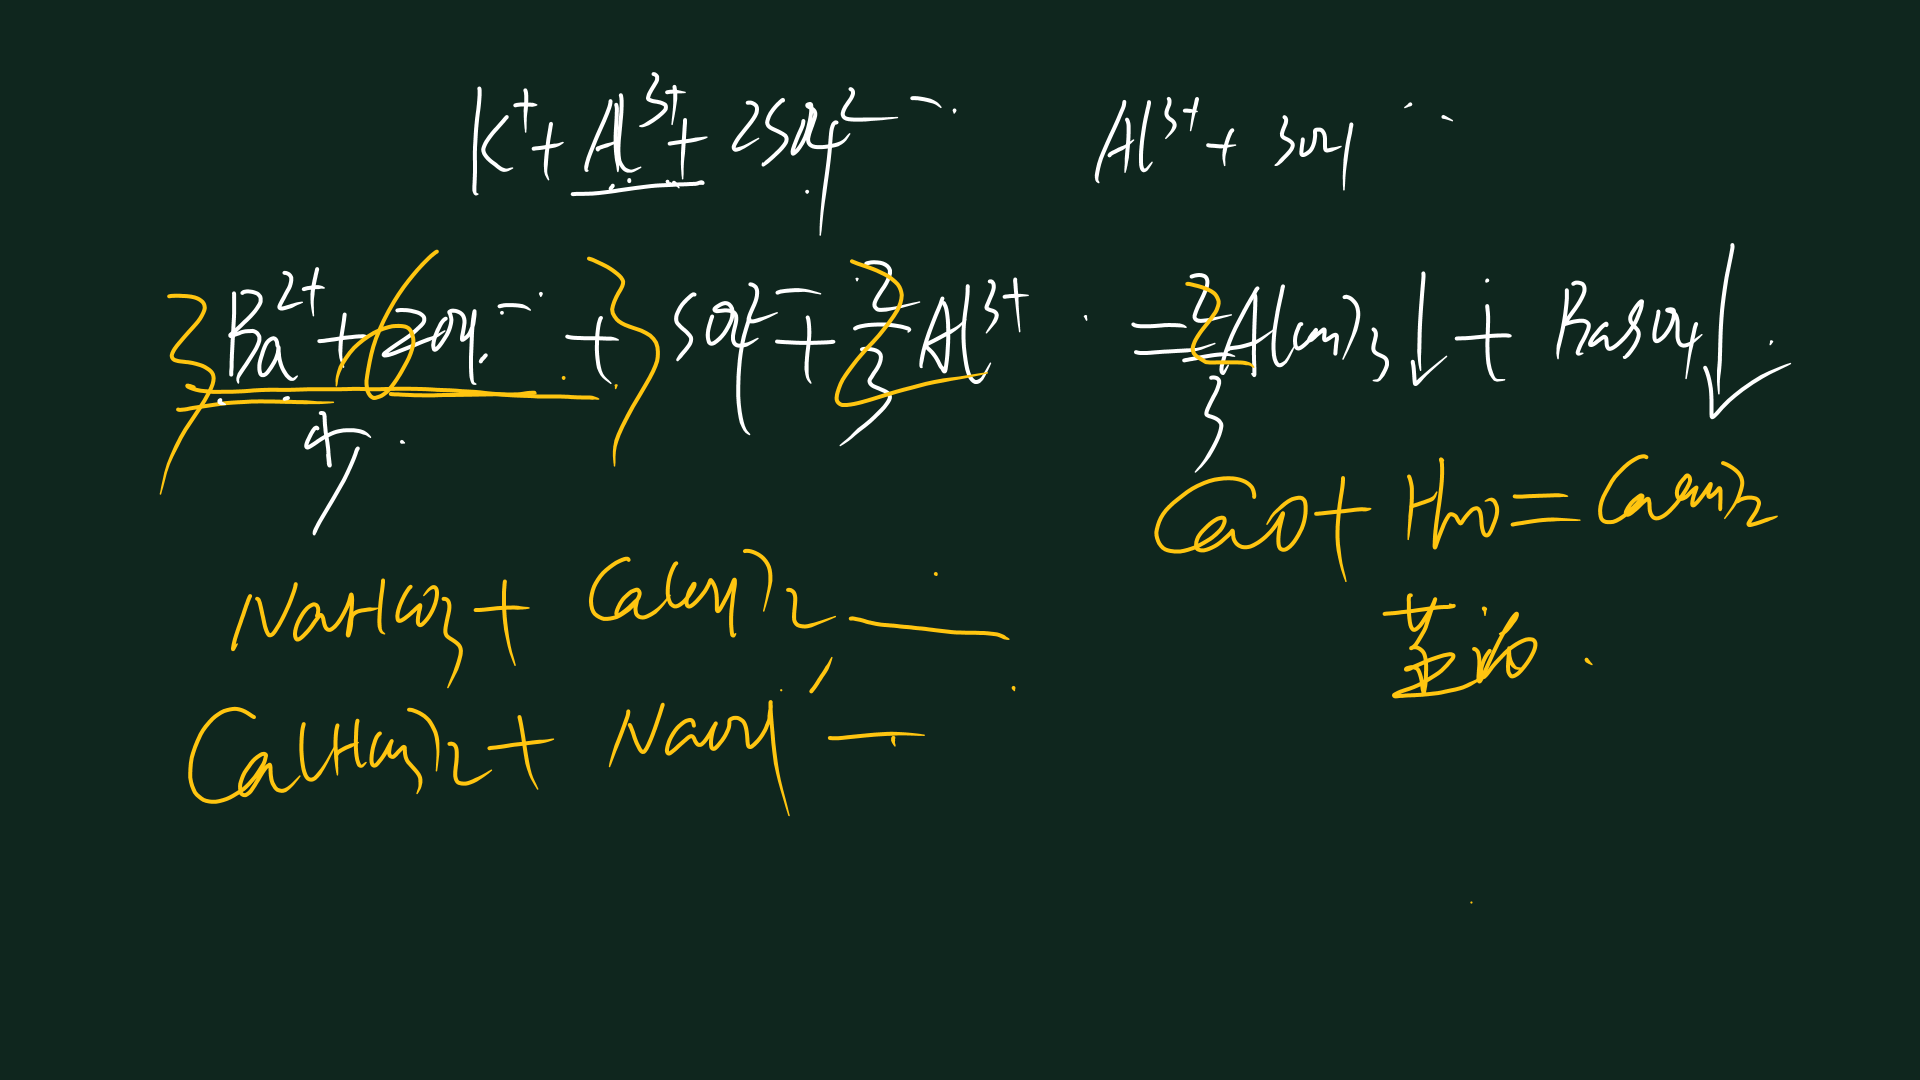 K⁺ + Al³⁺ + 2SO₄²⁻ Al³⁺ + 3OH
3 Ba²⁺ + 6 2OH⁻ + 3 SO₄²⁻ + 2/3 2 Al³⁺ = 2/3 2 Al(OH)₃↓ + BaSO₄↓
4
CaO + H₂O = Ca(OH)₂
NaHCO₃ + Ca(OH)₂ —
Ca(HCO₃)₂ + NaOH —